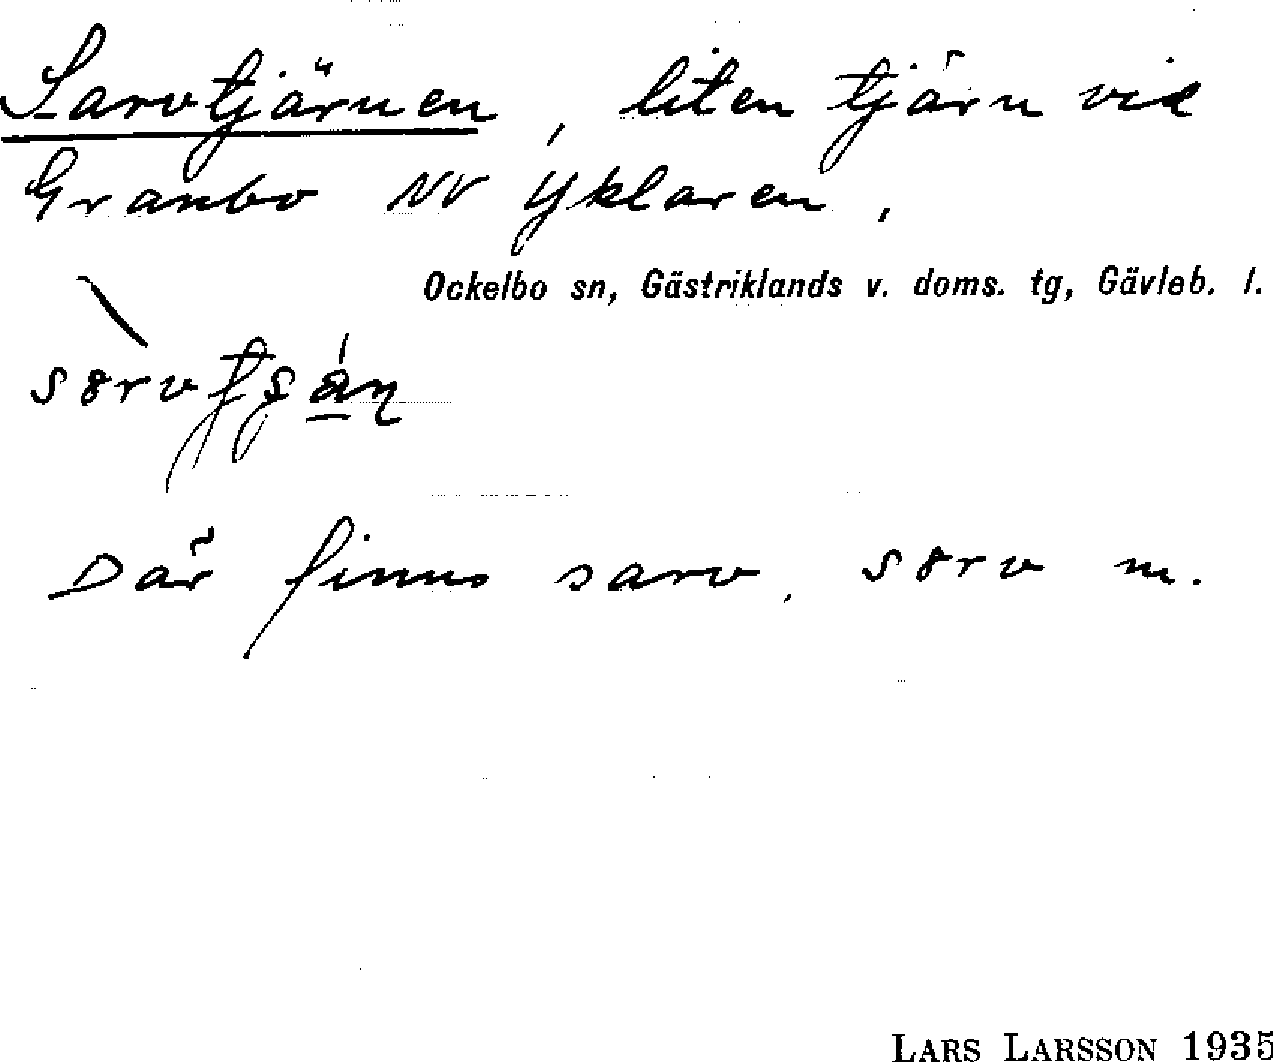 Sarvtjärnen, liten tjärn vid
Granbo NV Yklaren.
Ockelbo sn, Gästriklands v. doms. tg, Gävleb. l.
Där finns sarv, sørv m.
LARS LARSSON 1935